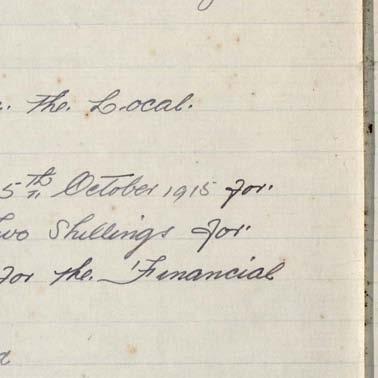 the. Local.
5th October 1915 for.
Two Shillings for.
for the. Financial